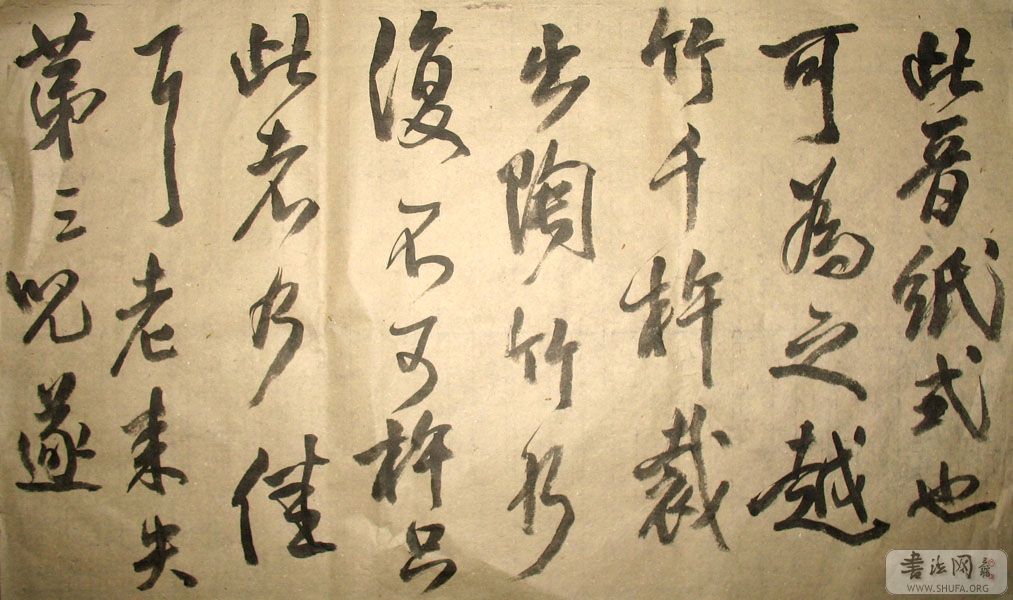 此晉紙式也
可為之越
竹千杵裁
出陶竹乃
復不可杵只
此者乃佳
耳老来失
第三兒遂
書法网
WWW.SHUFA.ORG